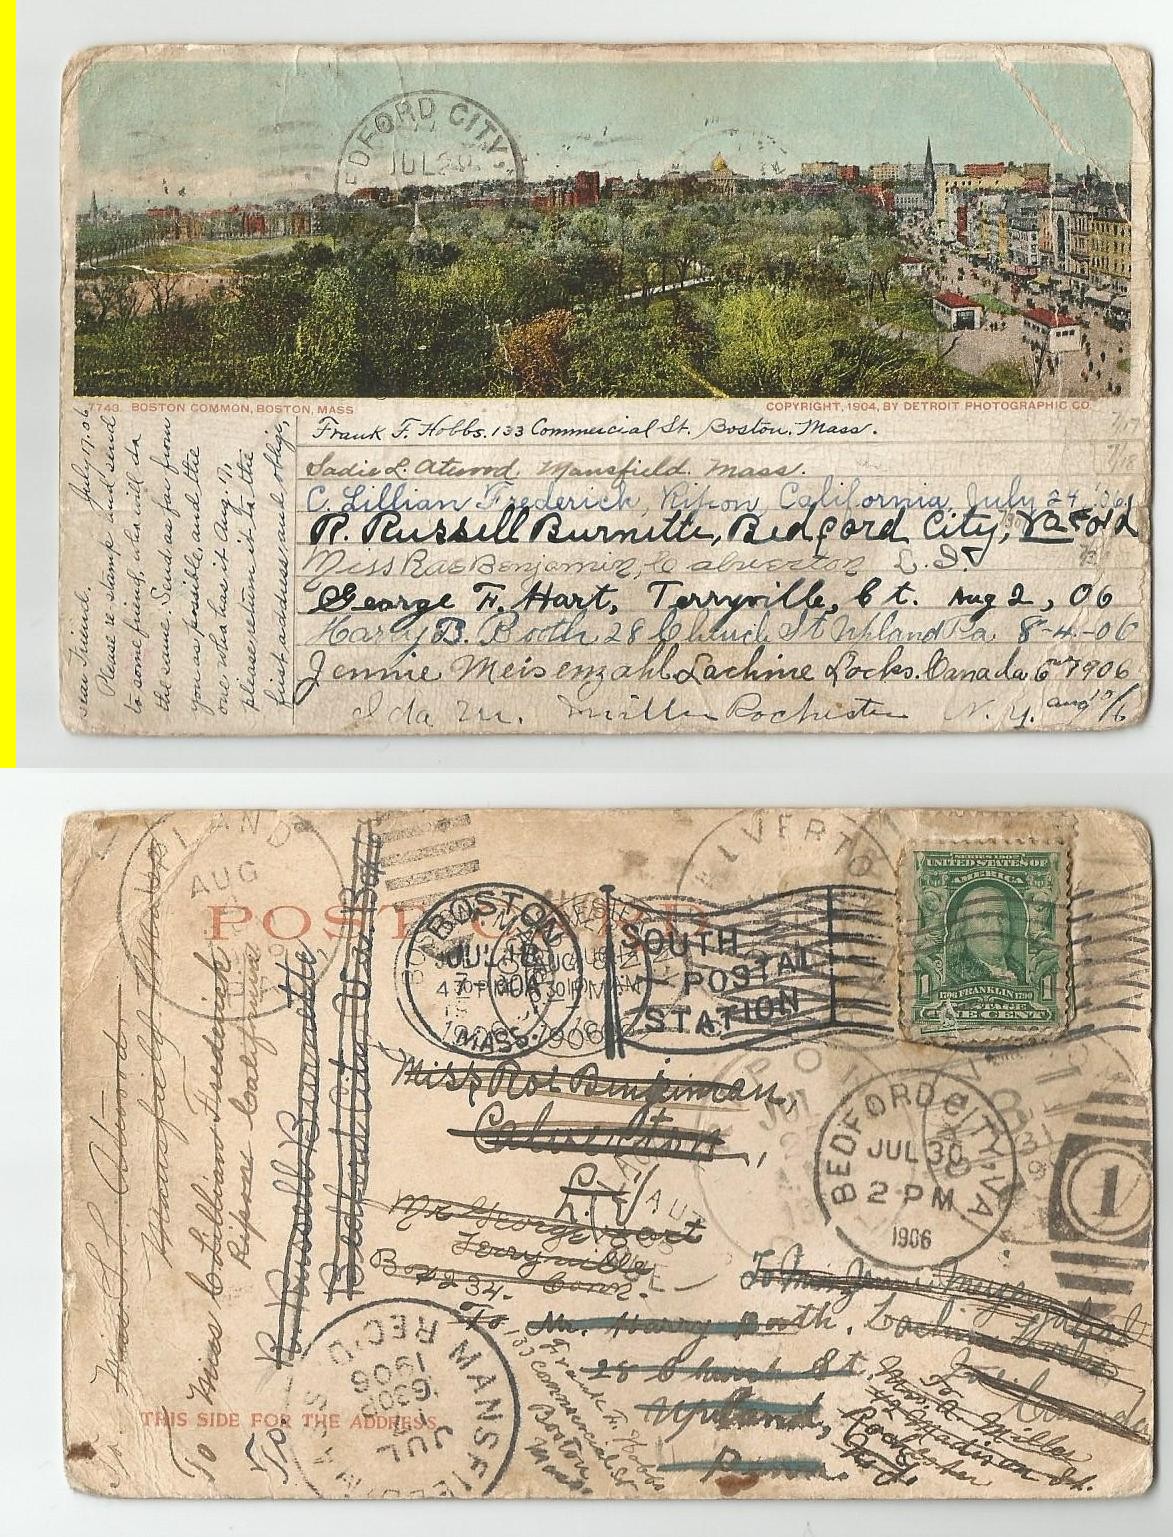 BEDFORD CITY,
JUL 30
743. BOSTON COMMON, BOSTON, MASS
COPYRIGHT, 1904, BY DETROIT PHOTOGRAPHIC CO.
July 17.06
Dear Friend.
Please re stamp and send
to some friend, who will do
the same. Send as far from
you as possible, and the
one who has it Aug. 11,
please return it to the
first address, and oblige,
Frank F. Hobbs. 133 Commercial St. Boston. Mass. 7/17
Sadie L. Atwood. Mansfield. Mass. 7/18
C. Lillian Frederich, Ripon, California July 24, '06
R. Russell Burnette, Bedford City, Va
Miss Rae Benjamin, Calverton L. I.
George F. Hart, Terryville, Ct. Aug 2, 06
Harry B. Booth 28 Church St Upland Pa 8-4-06
Jennie Meisenzahl Lachine Locks. Canada 1906
Ida M. Miller Rochester N. Y. aug
POST CARD
LAND
AUG
BOSTON
MASS.
1906
SOUTH
POSTAL
STATION
SERIES 1902
UNITED STATES OF
AMERICA
1 1
1706 FRANKLIN 1790
ONE CENT
BEDFORD CITY, VA
JUL 30
2 PM
1906
1
To Miss S. L. Atwood
Mansfield. Mass
To Miss C. Lillian Frederich
Ripon California
To R. Russell Burnette
Bedford City
Miss Rae Benjiman,
Calverton,
L. I.
Mr George Hart
Terryville
Box 234. Conn.
To Mr. Harry Booth.
28 Church St.
Upland,
Penn.
Lachine Locks
Canada
To
Miss. A. Miller
Madison St.
Rochester
N. Y.
To
Frank F. Hobbs
133 Commercial St
Boston
Mass.
MANSFIELD MASS
REC'D.
JUL
1906
THIS SIDE FOR THE ADDRESS.